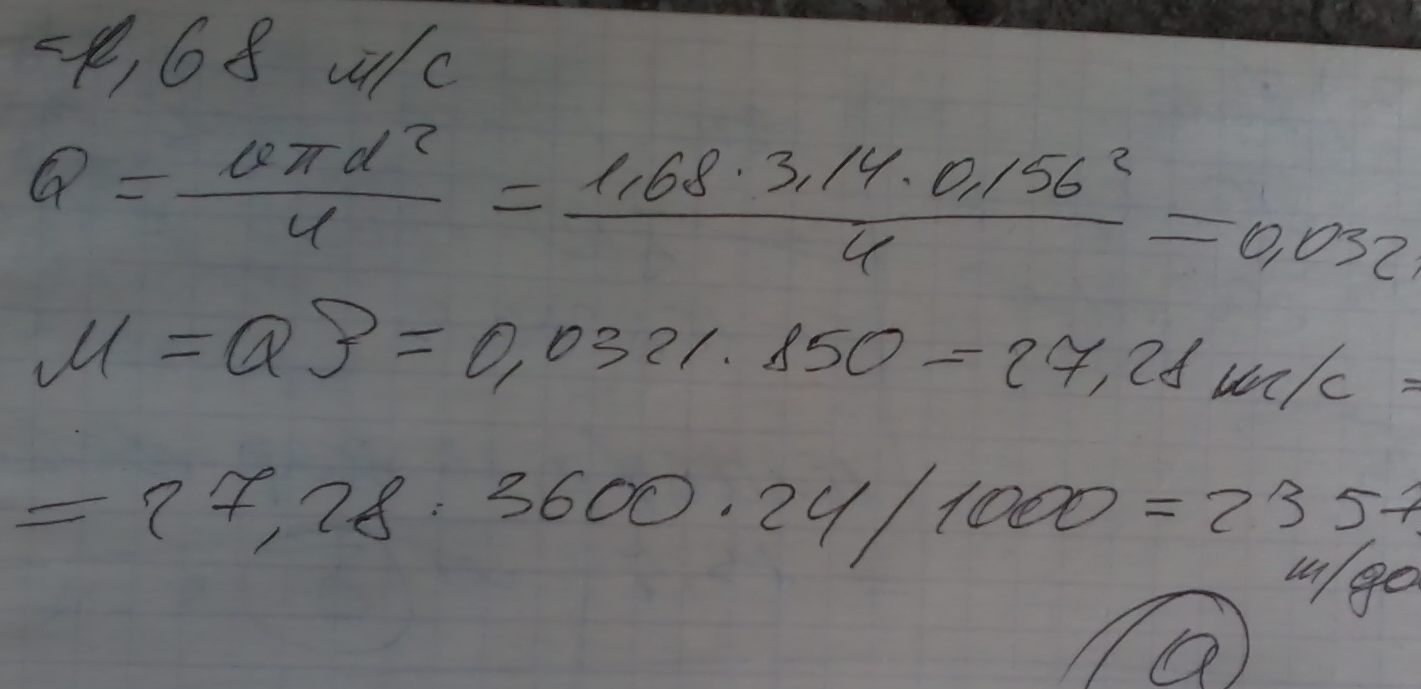 = 1,68 м/с
Q = vπd²/4 = 1,68 · 3,14 · 0,156²/4 = 0,0321
M = Qρ = 0,0321 · 850 = 27,28 кг/с =
= 27,28 · 3600 · 24/1000 = 2357
т/до
a